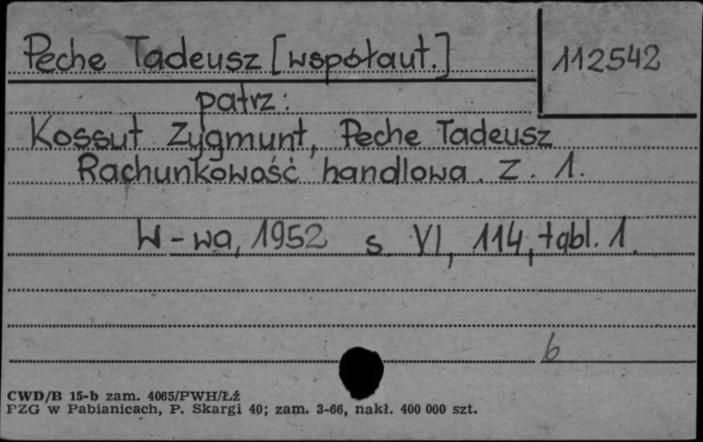 Peche Tadeusz [współaut.] 112542
patrz:
Kossut Zygmunt, Peche Tadeusz
Rachunkowość handlowa. Z. 1.
W-wa, 1952 s. VI, 114, tabl. 1.
b
CWD/B 15-b zam. 4065/PWH/Łź
PZG w Pabianicach, P. Skargi 40; zam. 3-66, nakł. 400 000 szt.